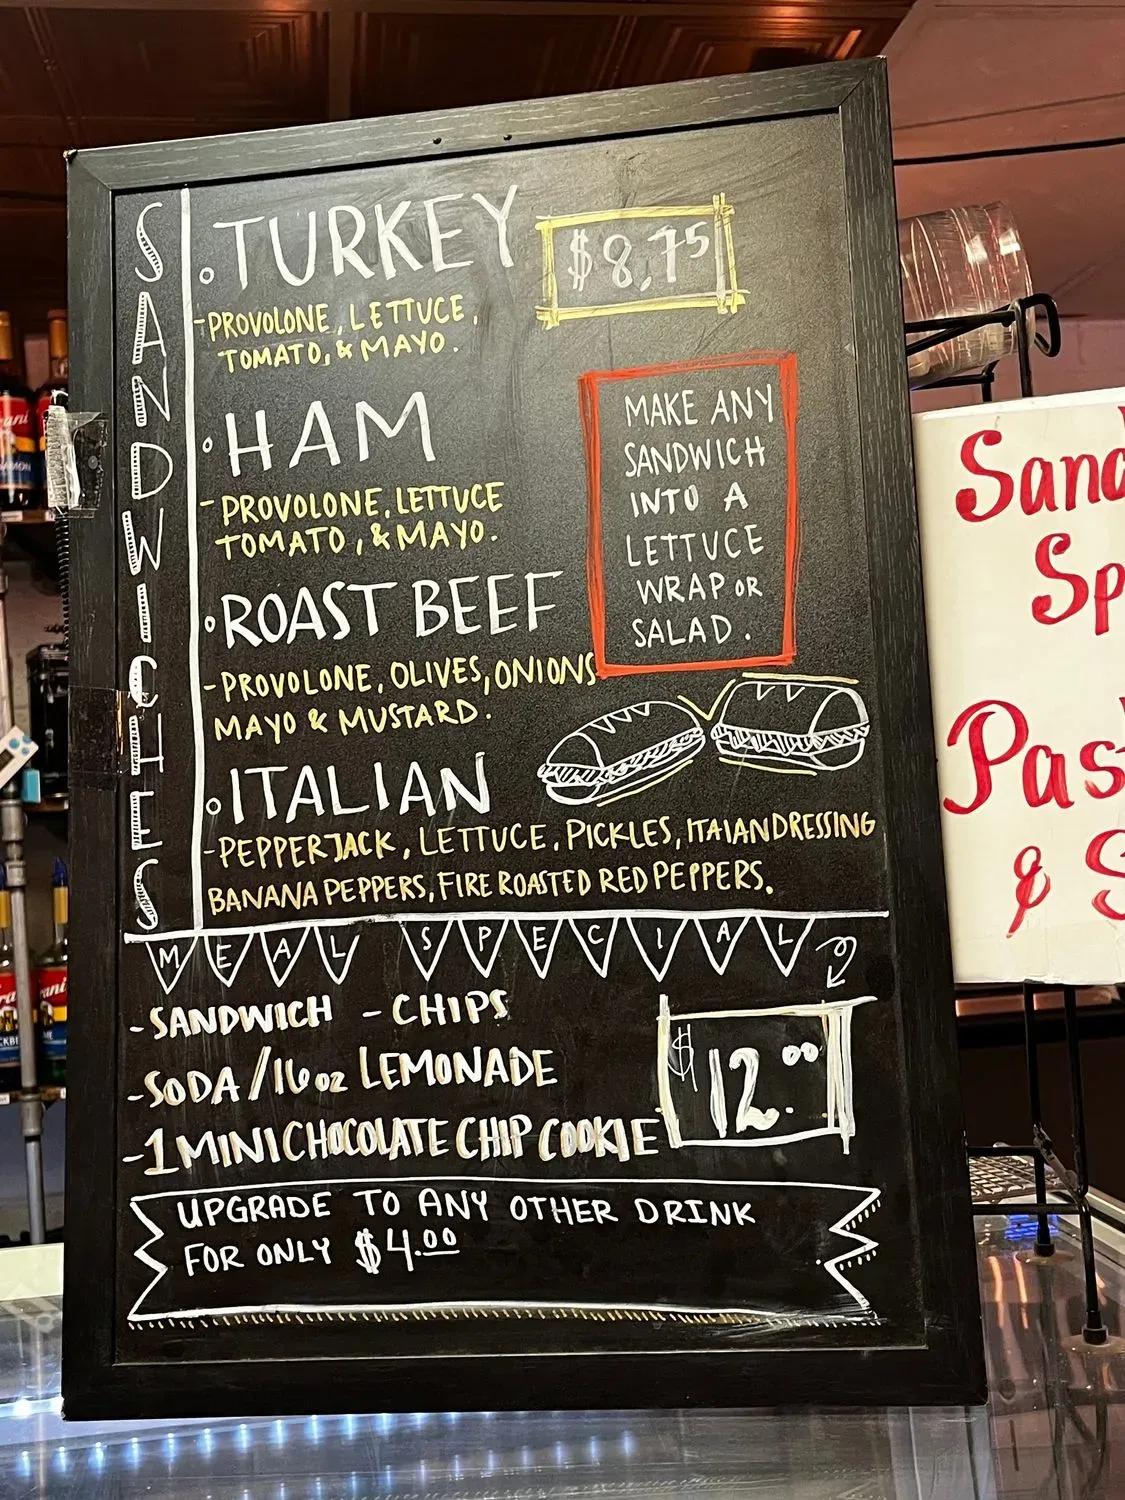 SANDWICHES
• TURKEY
$8.75
-PROVOLONE, LETTUCE,
TOMATO, & MAYO.
• HAM
- PROVOLONE, LETTUCE
TOMATO, & MAYO.
MAKE ANY
SANDWICH
INTO A
LETTUCE
WRAP OR
SALAD.
• ROAST BEEF
-PROVOLONE, OLIVES, ONIONS
MAYO & MUSTARD.
• ITALIAN
-PEPPERJACK, LETTUCE, PICKLES, ITAIANDRESSING
BANANA PEPPERS, FIRE ROASTED RED PEPPERS.
MEAL SPECIAL
-SANDWICH - CHIPS
-SODA/16oz LEMONADE
-1 MINI CHOCOLATE CHIP COOKIE
$12.00
UPGRADE TO ANY OTHER DRINK
FOR ONLY $4.00
&